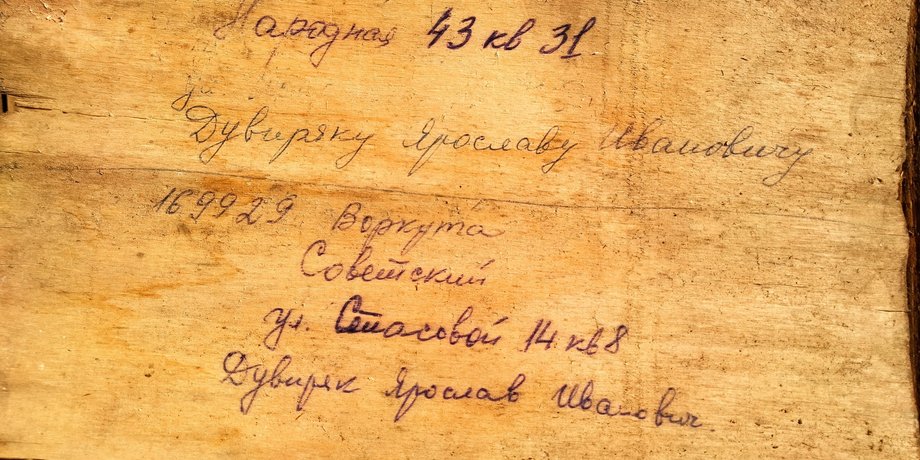 Народная 43 кв 31
Дувиряку Ярославу Ивановичу
169929 Воркута
Советский
ул. Стасовой 14 кв 8
Дувиряк Ярослав Иванович